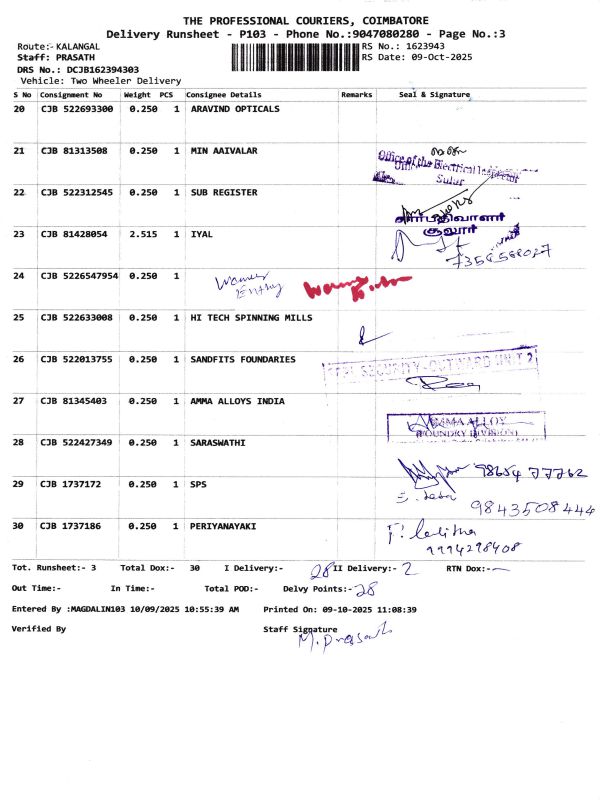 THE PROFESSIONAL COURIERS, COIMBATORE
Delivery Runsheet - P103 - Phone No.:9047080280 - Page No.:3
Route:- KALANGAL RS No.: 1623943
Staff: PRASATH RS Date: 09-Oct-2025
DRS No.: DCJB162394303
Vehicle: Two Wheeler Delivery
S No Consignment No Weight PCS Consignee Details Remarks Seal & Signature
20 CJB 522693300 0.250 1 ARAVIND OPTICALS
21 CJB 81313508 0.250 1 MIN AAIVALAR
Office of the Electrical Inspector
Sulur
22 CJB 522312545 0.250 1 SUB REGISTER
சார்பதிவாளர்
சூலூர்
23 CJB 81428054 2.515 1 IYAL
7358588027
24 CJB 5226547954 0.250 1
25 CJB 522633008 0.250 1 HI TECH SPINNING MILLS
26 CJB 522013755 0.250 1 SANDFITS FOUNDARIES
SECURITY-OUTWARD UNIT 2
27 CJB 81345403 0.250 1 AMMA ALLOYS INDIA
AMMA ALLOY
(FOUNDRY DIVISION)
28 CJB 522427349 0.250 1 SARASWATHI
98654 77762
29 CJB 1737172 0.250 1 SPS
9843508444
30 CJB 1737186 0.250 1 PERIYANAYAKI
Lalitha
9994298408
Tot. Runsheet:- 3 Total Dox:- 30 I Delivery:- 28 II Delivery:- 2 RTN Dox:- —
Out Time:- In Time:- Total POD:- Delvy Points:- 28
Entered By :MAGDALIN103 10/09/2025 10:55:39 AM Printed On: 09-10-2025 11:08:39
Verified By Staff Signature
M. Prasath